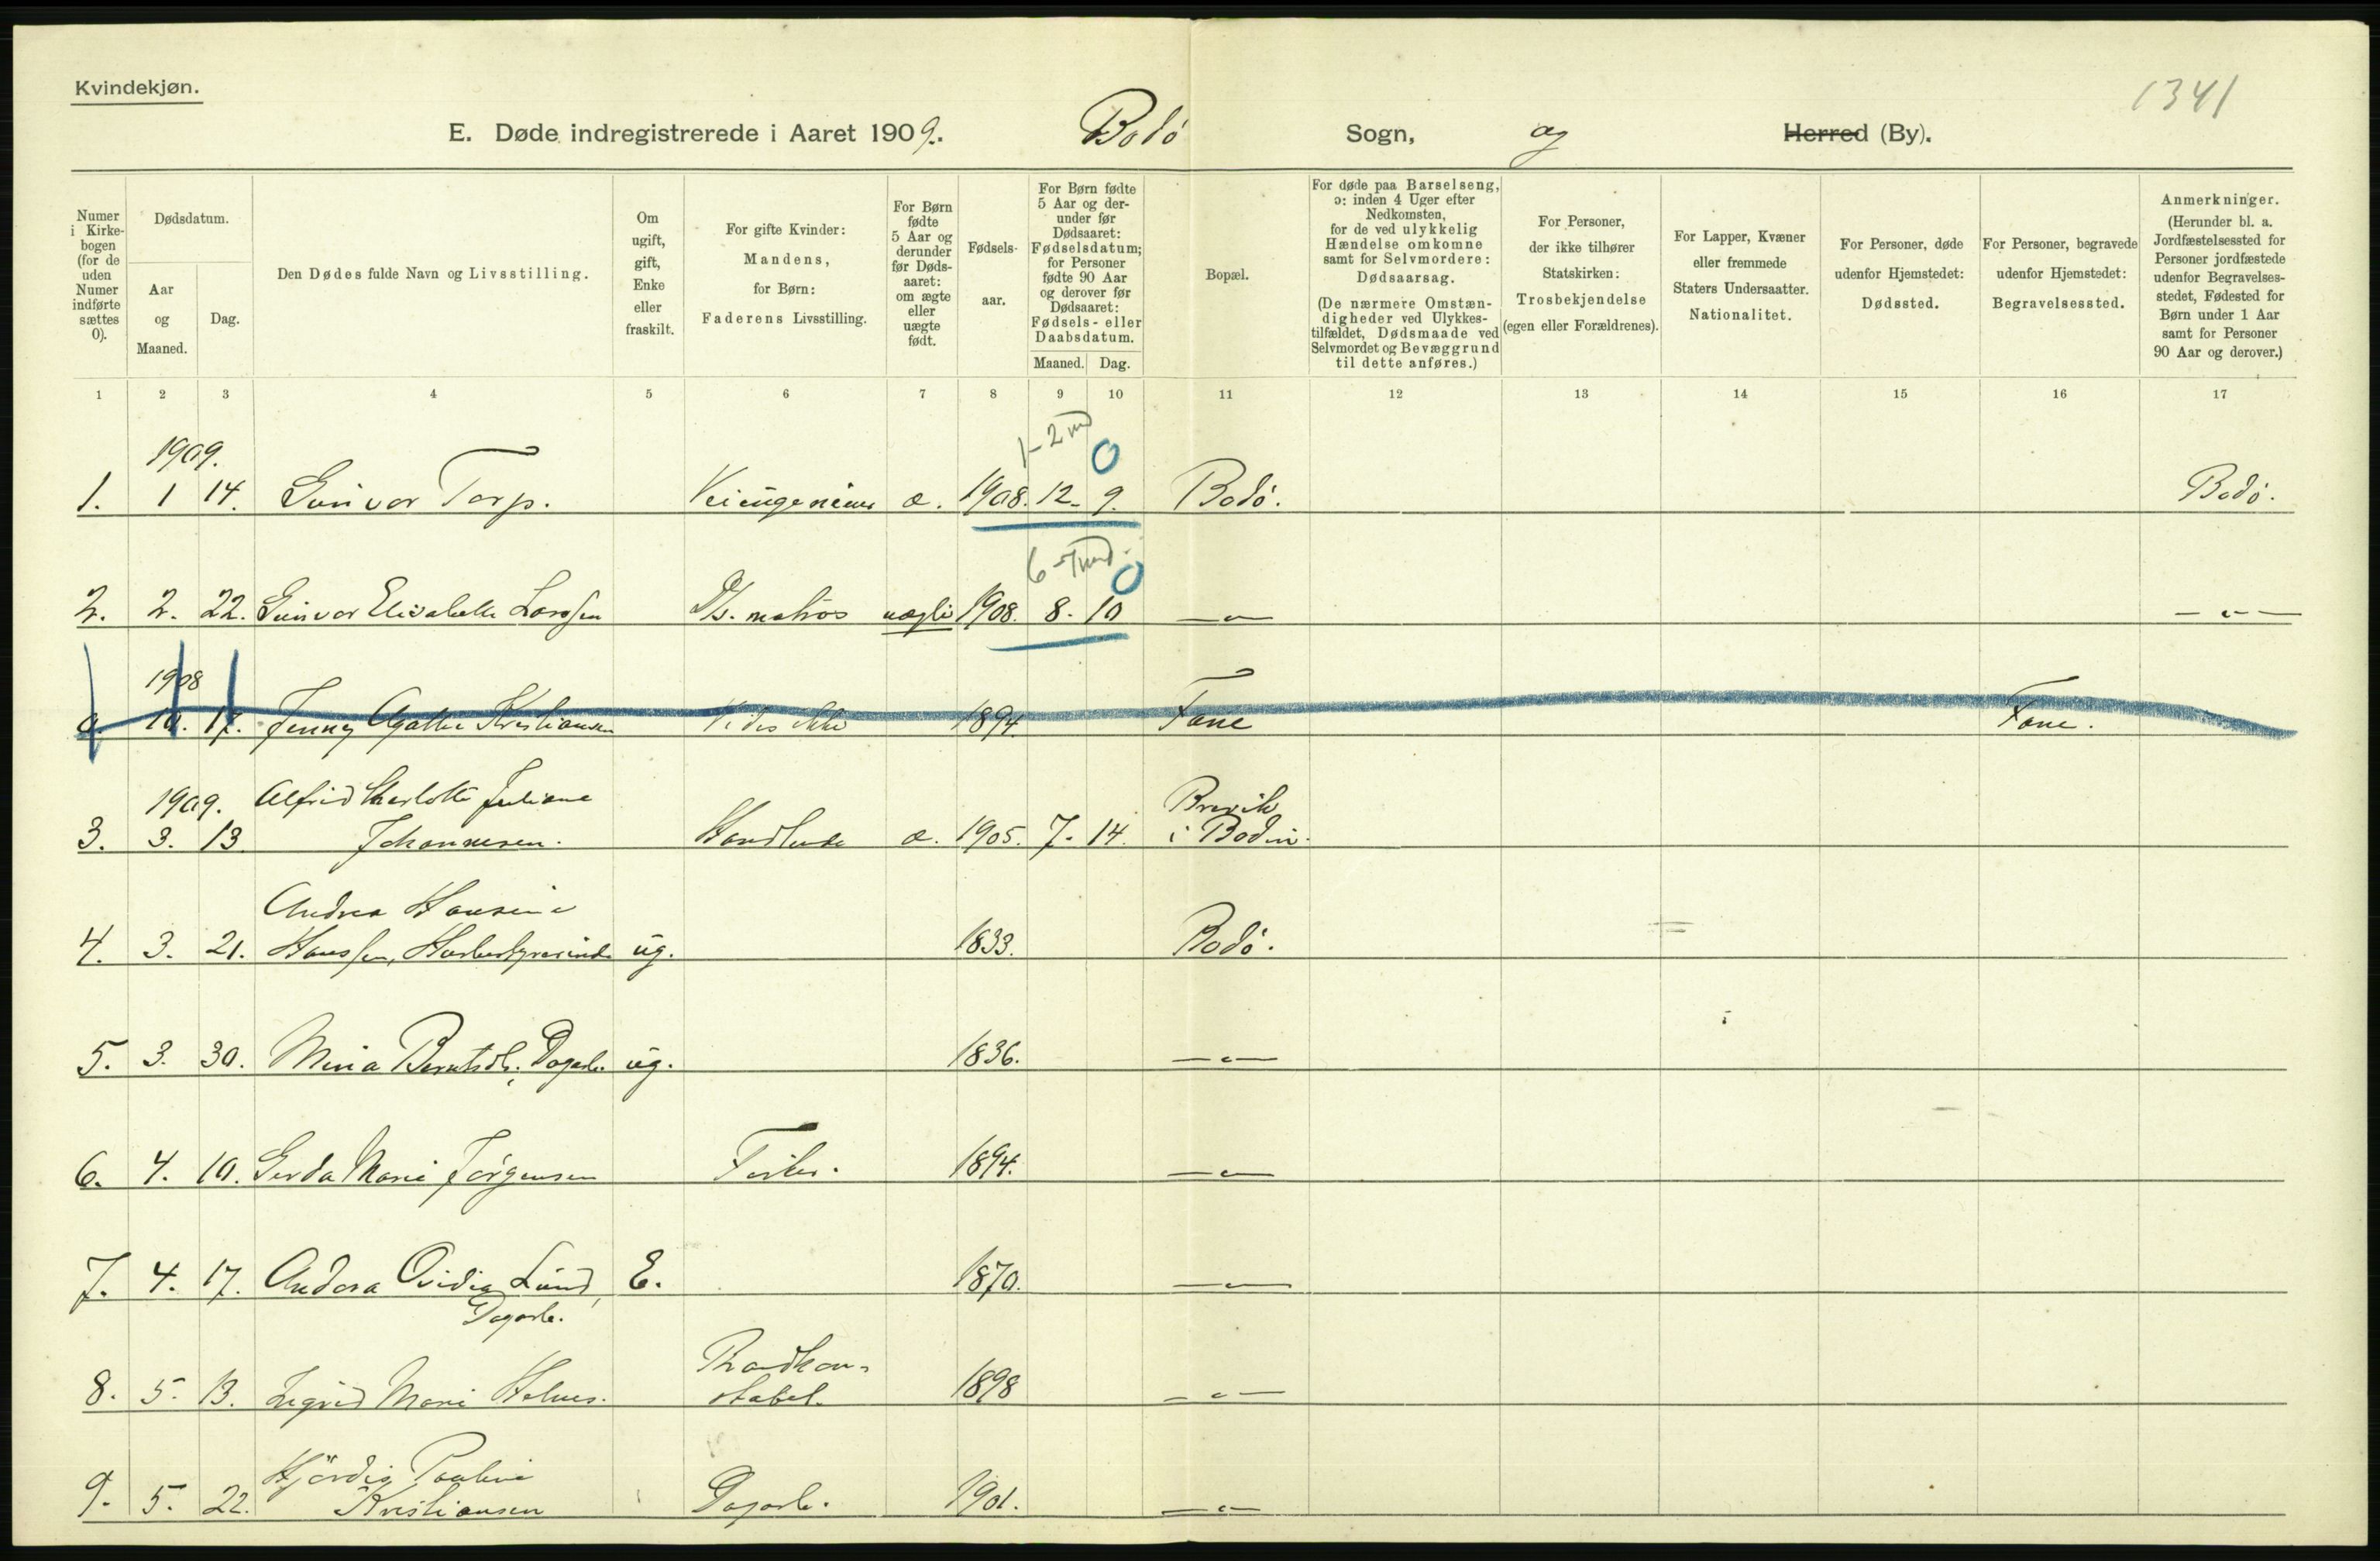 Kvindekjøn.
1341
E. Døde indregistrerede i Aaret 1909. Bodö Sogn, og Herred (By).
Numer i Kirke-bogen (for de uden Numer indførte sættes 0).
Dødsdatum.
Aar og Maaned.
Dag.
Den Dødes fulde Navn og Livsstilling.
Om ugift, gift, Enke eller fraskilt.
For gifte Kvinder: Mandens, for Børn: Faderens Livsstilling.
For Børn fødte 5 Aar og derunder før Døds-aaret: om ægte eller uægte født.
Fødsels-aar.
For Børn fødte 5 Aar og der-under før Dødsaaret: Fødselsdatum; for Personer fødte 90 Aar og derover før Dødsaaret: Fødsels- eller Daabsdatum.
Maaned. Dag.
Bopæl.
For døde paa Barselseng, ɔ: inden 4 Uger efter Nedkomsten, for de ved ulykkelig Hændelse omkomne samt for Selvmordere: Dødsaarsag.
(De nærmere Omstæn-digheder ved Ulykkes-tilfældet, Dødsmaade ved Selvmordet og Bevæggrund til dette anføres.)
For Personer, der ikke tilhører Statskirken: Trosbekjendelse (egen eller Forældrenes).
For Lapper, Kvæner eller fremmede Staters Undersaatter. Nationalitet.
For Personer, døde udenfor Hjemstedet: Dødssted.
For Personer, begravede udenfor Hjemstedet: Begravelsessted.
Anmerkninger.
(Herunder bl. a. Jordfæstelsessted for Personer jordfæstede udenfor Begravelses-stedet, Fødested for Børn under 1 Aar samt for Personer 90 Aar og derover.)
1 2 3 4 5 6 7 8 9 10 11 12 13 14 15 16 17
1909. 1-2 md 0
1. 1 14. Gunvor Torp. Veiingeniør æ. 1908. 12. 9. Bodö. Bodö.
6-7 md. 0
2. 2. 22. Gunvor Elisabeth Larssen D/s. matros uægte 1908. 8. 10 —„— —„—
1908
0. 10. 17. Jenny Agathe Kristiansen Vides ikke 1894. Fane Fane.
1909. Alfrid Charlotte Juliane Brevik
3. 3. 13 Johannesen. Handlende æ. 1905. 7. 14. i Bodin.
Andrea Hansine
4. 3. 21. Hanssen, ug. 1833. Bodö.
5. 3. 30. Mina Berntsdt., Dagarb. ug. 1836. —„—
6. 4. 10. Gerda Marie Jörgensen Fisker. 1894. —„—
7. 4. 17. Andora Ovidia Lund, E. 1870. —„—
Dagarb.
Raadhou-
8. 5. 13. Sigrid Marie 1898 —„—
stabel.
Hjördis Pauline
9. 5. 22. Kristiansen Dagarb. 1901. —„—